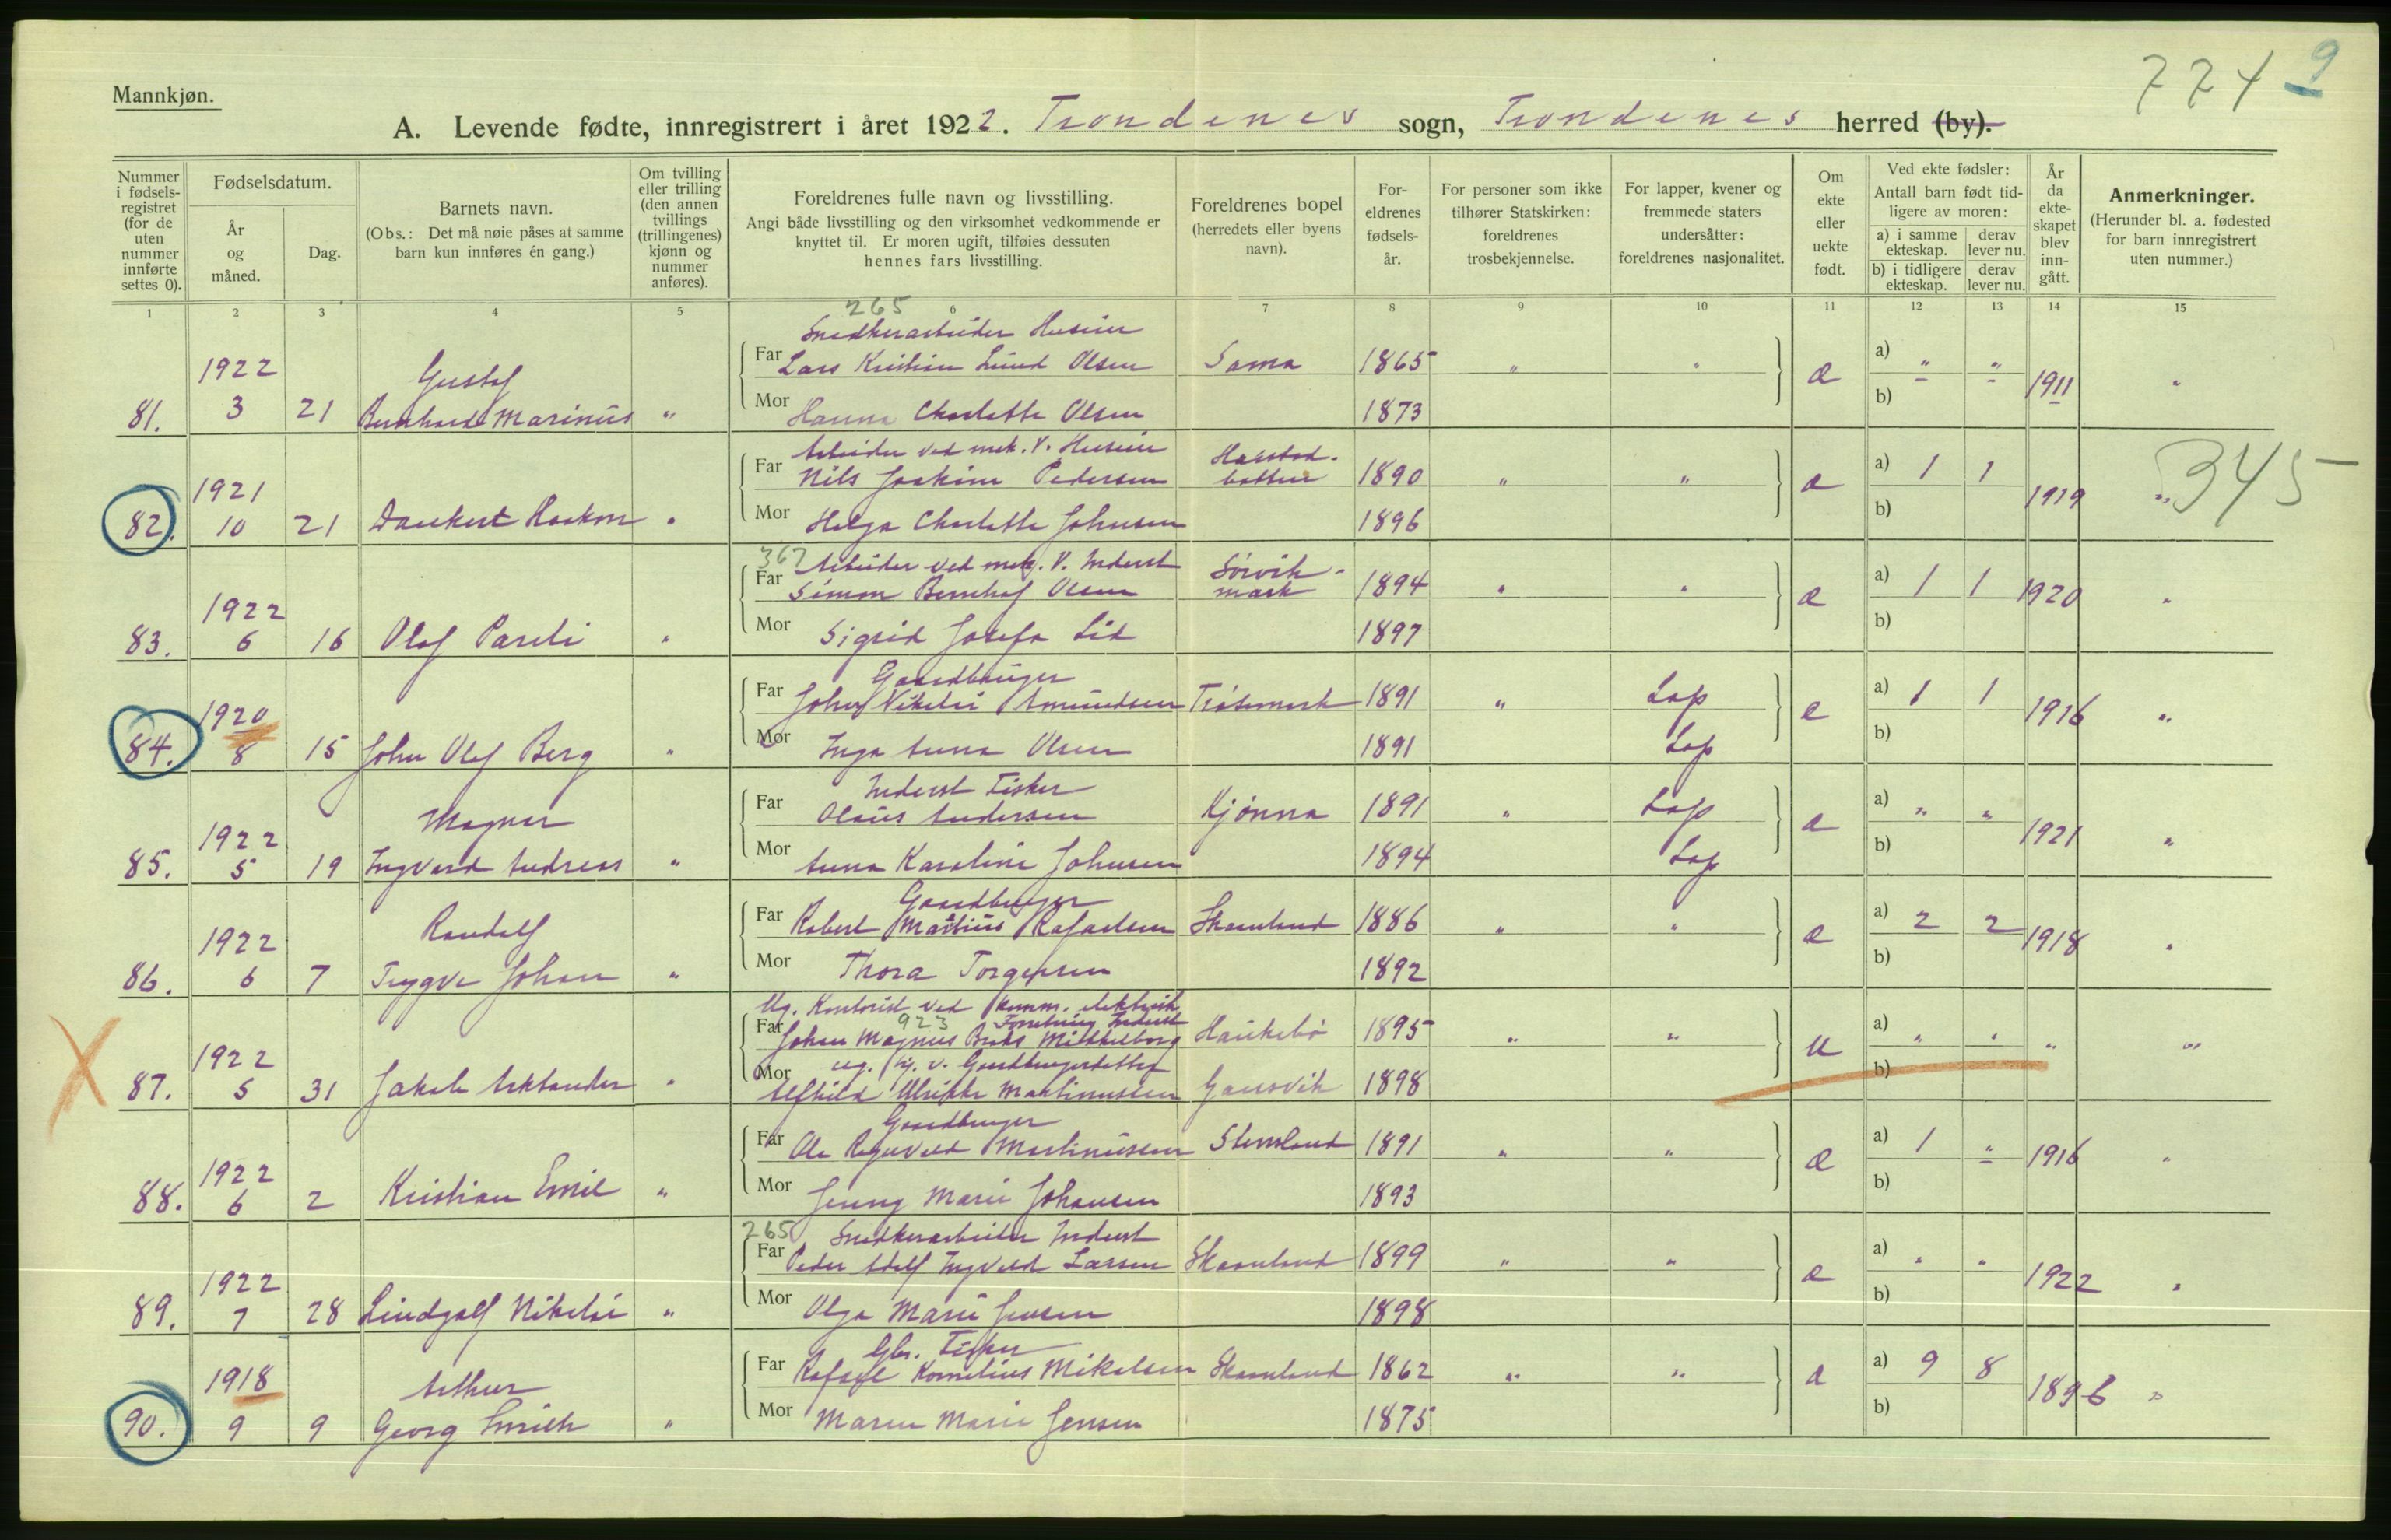 774 9
Mannkjøn.
A. Levende fødte, innregistrert i året 1922. Trondenes sogn, Trondenes herred (by).
Nummer i fødselsregistret (for de uten nummer innførte settes 0).
Fødselsdatum.
År og måned.
Dag.
Barnets navn.
(Obs.: Det må nøie påses at samme barn kun innføres én gang.)
Om tvilling eller trilling (den annen tvillings (trillingenes) kjønn og nummer anføres).
Foreldrenes fulle navn og livsstilling.
Angi både livsstilling og den virksomhet vedkommende er knyttet til. Er moren ugift, tilføies dessuten hennes fars livsstilling.
Foreldrenes bopel (herredets eller byens navn).
Foreldrenes fødselsår.
For personer som ikke tilhører Statskirken: foreldrenes trosbekjennelse.
For lapper, kvener og fremmede staters undersåtter: foreldrenes nasjonalitet.
Om ekte eller uekte født.
Ved ekte fødsler:
Antall barn født tidligere av moren:
a) i samme ekteskap. derav lever nu.
b) i tidligere ekteskap. derav lever nu.
År da ekteskapet blev inngått.
Anmerkninger.
(Herunder bl. a. fødested for barn innregistrert uten nummer.)
1 2 3 4 5 6 7 8 9 10 11 12 13 14 15
265
Snedkerarbeider Huseier
81. 1922 3 21 Gustaf Bernhard Marinus " Far Lars Kristian Lund Olsen Sama 1865 " " a) " " 1911 "
Mor Hanna Charlotte Olsen 1873 b)
Arbeider ved mek. V. Huseier
82. 1921 10 21 Dankert Haakon " Far Nils Joakim Pedersen Harstadbotten 1890 " " a) 1 1 1919 " 345
Mor Helga Charlotte Johnsen 1896 b)
367 Arbeider ved mek. V. Inderst
83. 1922 6 16 Olaf Pareli " Far Simon Bernhof Olsen Sørvikmark 1894 " " a) 1 1 1920 "
Mor Sigrid Josefa Lid 1897 b)
Gaardbruger
84. 1920 8 15 John Olaf Berg " Far John Nikolai Amundsen 1891 " Lap e a) 1 1 1916 "
Mor Inga Anna Olsen 1891 Lap b)
Inderst Fisker
85. 1922 5 19 Magnar Ingvard Andreas " Far Olaus Andersen Kjønna 1891 " Lap a) " " 1921 "
Mor Anna Karoline Johnsen 1894 Lap b)
Gaardbruger
86. 1922 6 7 Randolf Trygve Johan " Far Robert Martius Rafaelsen Skaanland 1886 " " a) 2 2 1918 "
Mor Thora Torgersen 1892 b)
Ug. Kontorist ved komm. elektrisk Forretning Inderst
923
87. 1922 5 31 Jakob " Far Johan Magnus Mikkelborg Haukebø 1895 " " u a) " " " "
ug. Gaardbrugerdatter
Mor Alfhild Ulrikke Martinussen Gausvik 1898 b)
Gaardbruger
88. 1922 6 2 Kristian Emil " Far Ole Martinussen 1891 " " a) 1 " 1916 "
Mor Jenny Marie Johansen 1893 b)
265 Snedkerarbeider Inderst
89. 1922 7 28 Lindgolf Nikolai " Far Peder Adolf Ingvald Larsen Skaanland 1899 " " a) " " 1922 "
Mor Olga Marie Jensen 1898 b)
Gbr. Fisker
90. 1918 9 9 Arthur Georg Smith " Far Rafael Kornelius Mikalsen Skaanland 1862 " " a) 9 8 1896 "
Mor Maren Marie Jensen 1875 b)